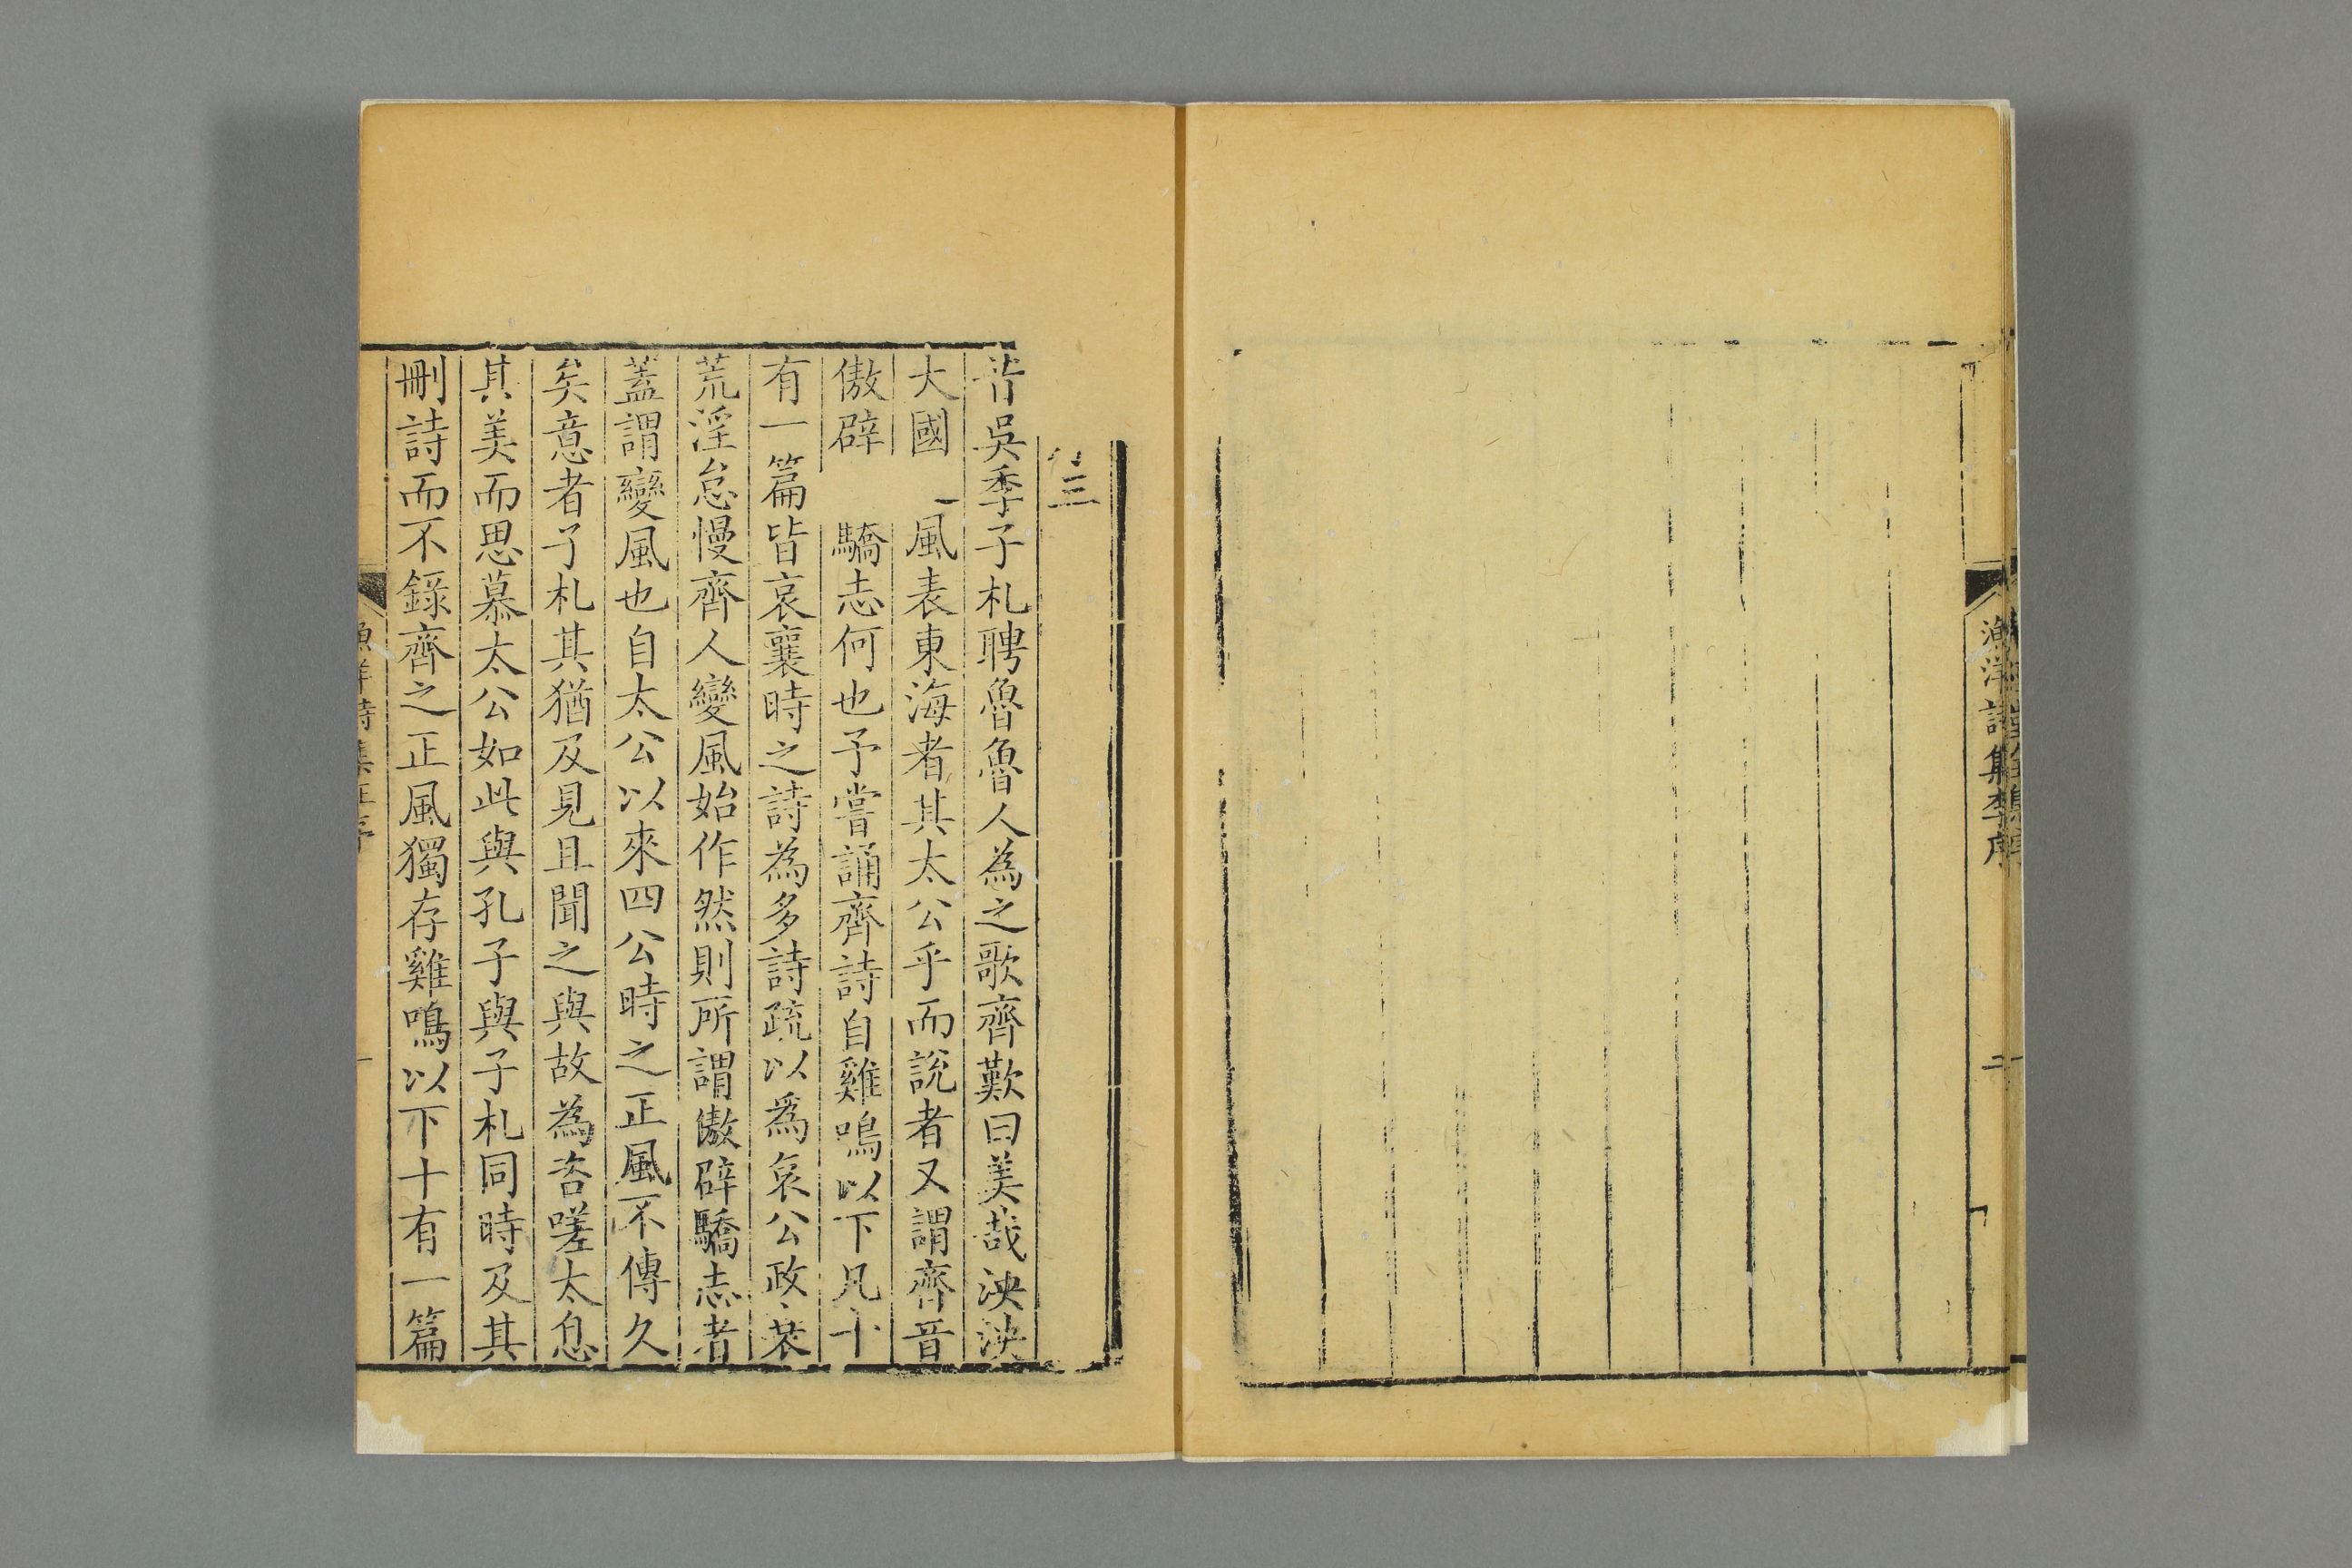 漁洋詩集李序
二
三
昔吳季子札聘魯魯人為之歌齊歎曰美哉泱泱
大國 風表東海者其太公乎而說者又謂齊音
傲辟 驕志何也予嘗誦齊詩自雞鳴以下凡十
有一篇皆哀襄時之詩為多詩疏以爲哀公政衰
荒淫怠慢齊人變風始作然則所謂傲辟驕志者
蓋謂變風也自太公以來四公時之正風不傳久
矣意者子札其猶及見且聞之與故為咨嗟太息
其美而思慕太公如此與孔子與子札同時及其
刪詩而不錄齊之正風獨存雞鳴以下十有一篇
漁洋詩集
一